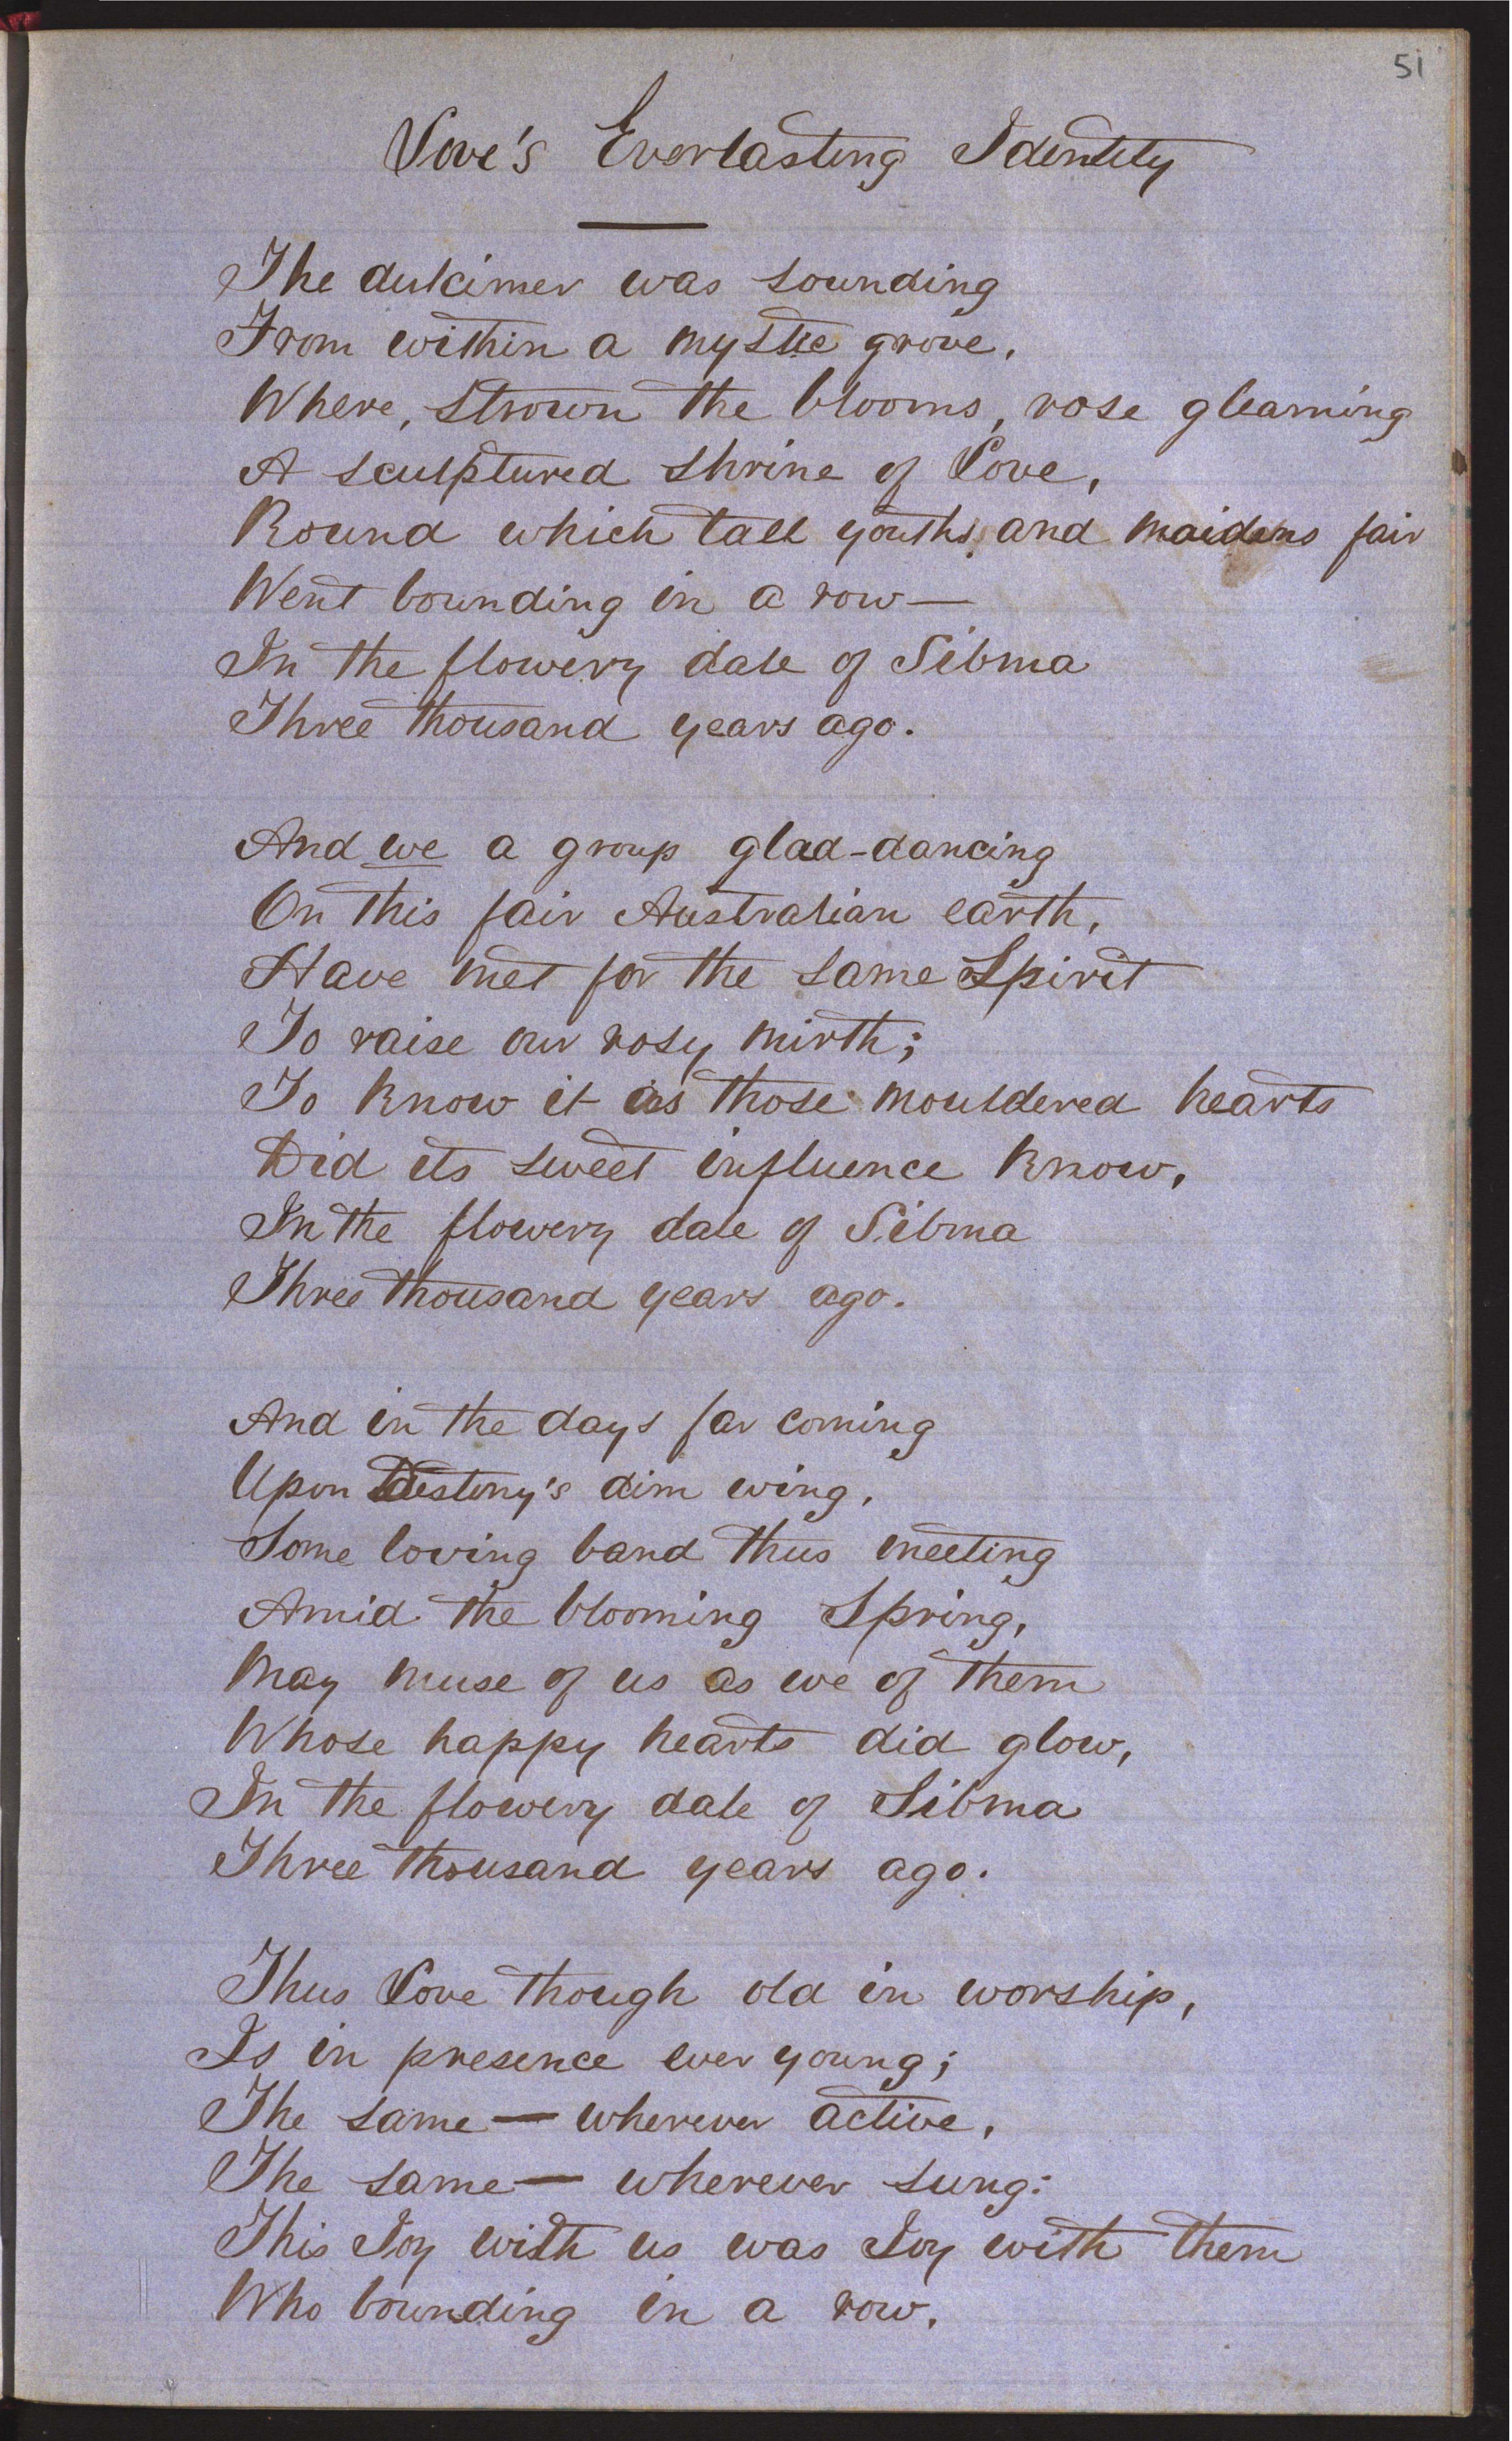 51
Love's Everlasting Identity
The dulcimer was sounding
From within a mystic grove,
Where, strown the blooms, rose gleaming
A sculptured shrine of Love,
Round which tall youths, and maidens fair
Went bounding in a row—
In the flowery dale of Sibma
Three thousand years ago.
And we a group glad-dancing
On this fair Australian earth,
Have met for the same Spirit
To raise our rosy mirth;
To know it as those mouldered hearts
Did its sweet influence know,
In the flowery dale of Sibma
Three thousand years ago.
And in the days far coming
Upon Destiny's dim wing,
Some loving band thus meeting
Amid the blooming Spring,
May muse of us as we of them
Whose happy hearts did glow,
In the flowery dale of Sibma
Three thousand years ago.
Thus Love though old in worship,
Is in presence ever young;
The same — wherever active,
The same — wherever sung:
This Joy with us was Joy with them
Who bounding in a row,